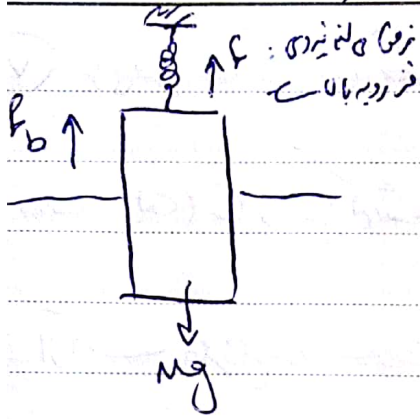 فرض می کنیم نیروی
فنر رو به بالا است
F
F_b
Mg